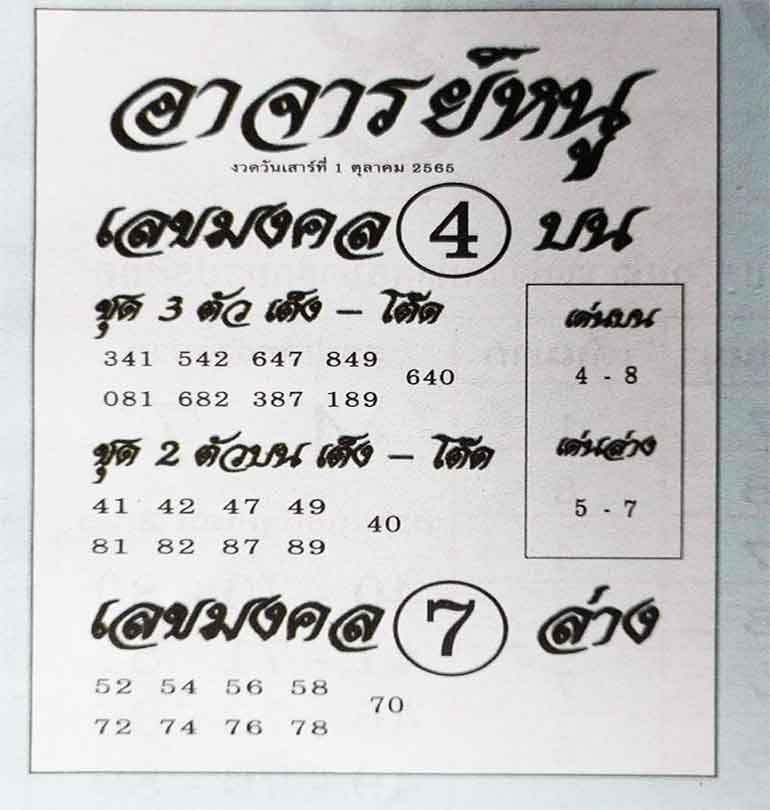 อาจารย์หนู
งวดวันเสาร์ที่ 1 ตุลาคม 2565
เลขมงคล 4 บน
ชุด 3 ตัว เต็ง – โต๊ด
341 542 647 849
640
081 682 387 189
ชุด 2 ตัวบน เต็ง – โต๊ด
41 42 47 49
40
81 82 87 89
เด่นบน
4 - 8
เด่นล่าง
5 - 7
เลขมงคล 7 ล่าง
52 54 56 58
70
72 74 76 78